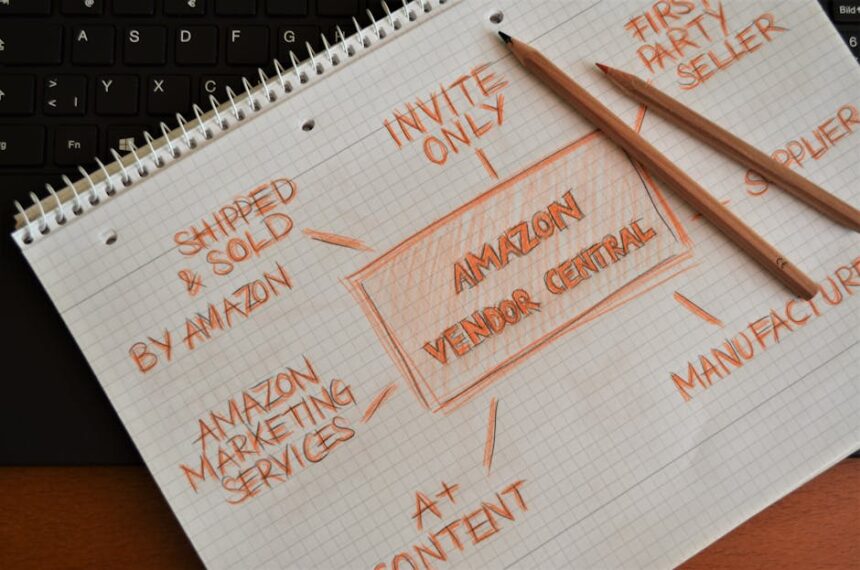 INVITE
ONLY
FIRST
PARTY
SELLER
SHIPPED
& SOLD
BY AMAZON
AMAZON
VENDOR CENTRAL
SUPPLIER
MANUFACTURE
AMAZON
MARKETING
SERVICES
A+
CONTENT
A S D F G
> < |
Y X C
Fn
Bild
6